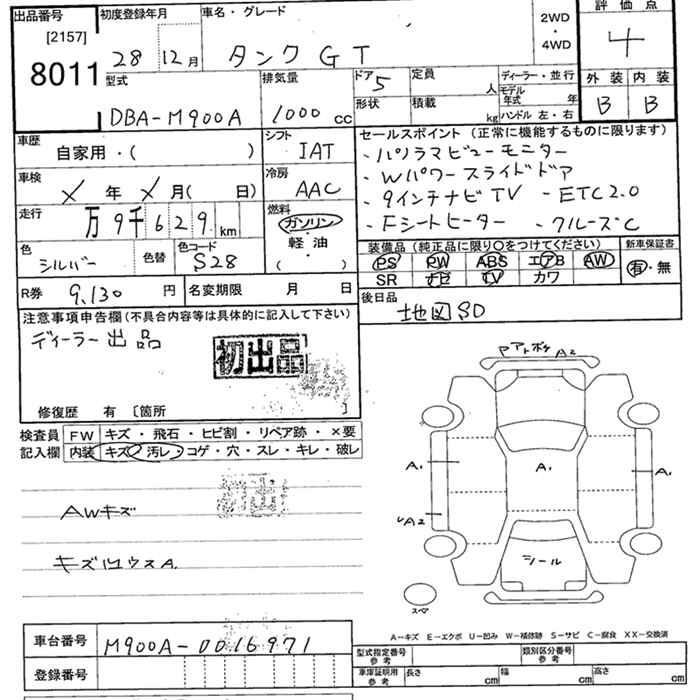 出品番号 初度登録年月 車名・グレード 2WD・4WD 評価点
[2157]
8011 28年12月 タンク GT 4
型式 排気量 ドア 5 定員 人 ディーラー・並行 外装 内装
DBA-M900A 1000 cc 形状 積載 kg モデル年式 年 ハンドル 左・右 B B
車歴 シフト セールスポイント(正常に機能するものに限ります)
自家用・( ) IAT ・パノラマビューモニター
車検 冷房 ・Wパワースライドドア
X年X月( 日) AAC ・9インチナビTV ・ETC2.0
走行 燃料 ・Fシートヒーター ・クルーズC
万9千629km ガソリン・軽油( )
色 色替 色コード 装備品(純正品に限り○をつけてください) 新車保証書
シルバー S28 PS PW ABS エアB AW 有・無
SR ナビ TV カワ
R券 9,130円 名変期限 月 日 後日品
地図SD
注意事項申告欄(不具合内容等は具体的に記入して下さい)
ディーラー出品
初出品
修復歴 有 [箇所 ]
アアトボケ A2
検査員 FW キズ・飛石・ヒビ割・リペア跡・×要
記入欄 内装 キズ・汚レ・コゲ・穴・スレ・キレ・破レ
A1 A1 A1
初出
AWキズ A2
シール
スペア
A-キズ E-エクボ U-凹み W-補修跡 S-サビ C-腐食 XX-交換済
車台番号 M900A-0016971
型式指定番号 参考 類別区分番号 参考
登録番号 車庫証明用 参考 長さ cm 幅 cm 高さ cm